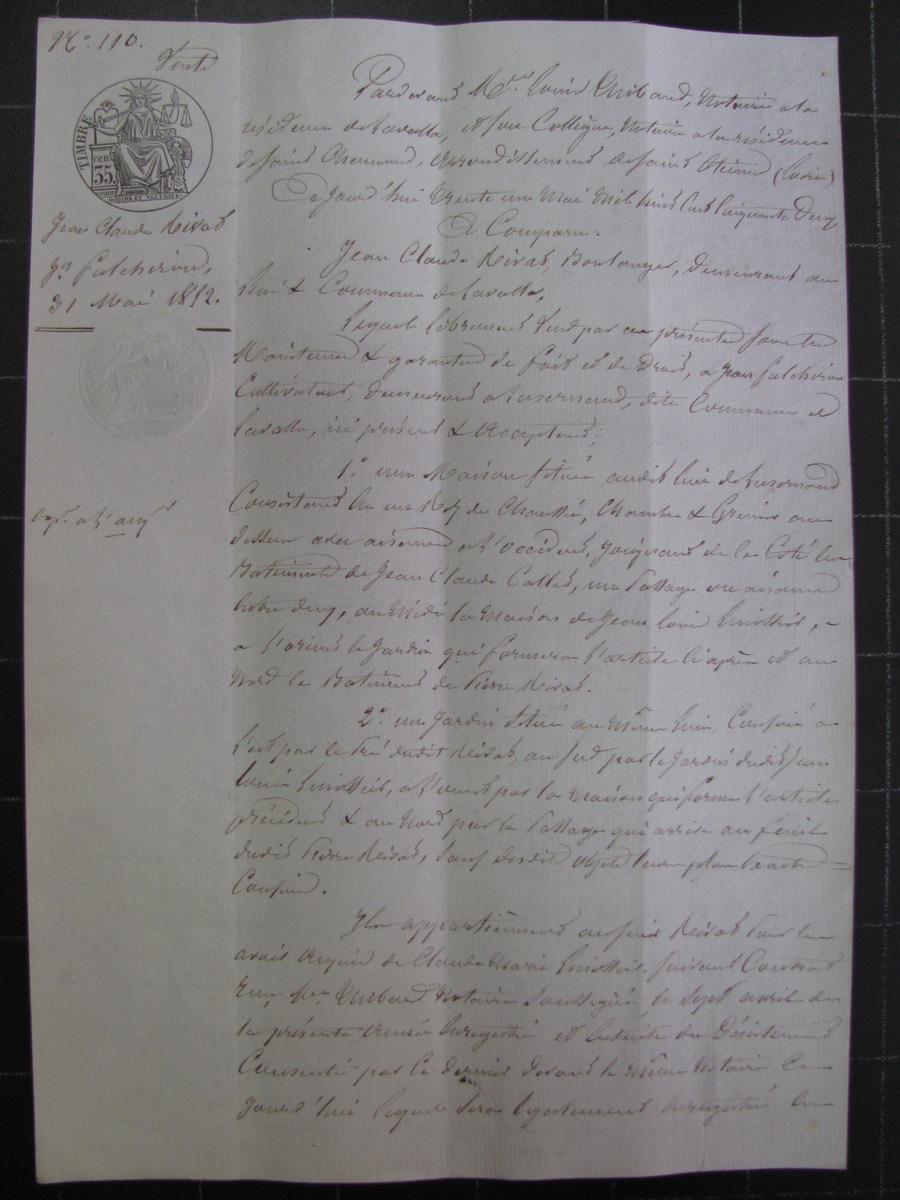 No. 110.
Vente
TIMBRE
cen.
35
Jean Claude Rivat
Jn Fulchiron,
31 Mai 1852.
Pardevant Mtre Louis Thibaud, Notaire a la
résidence de Lavalla, et son Collègue, Notaire a la résidence
de Saint Chamond, arrondissement de Saint Etienne (Loire)
Ce Jourd'hui trente un Mai Mil huit cent Cinquante Deux
A Comparu:
Jean Claude Rivat, Boulanger, demeurant au
lieu & Commune de Lavalla,
Lequel librement vend par ces présentes sous les
Maintenue & garantie de fait et de Droit, a Jean Fulchiron
Cultivateur, demeurant a Luzernaud, dite Commune de
Lavalla, ici présent & acceptant;
1.° une Maison située audit lieu de Luzernaud
Consistant en un Rez de Chaussée, Chambre & Grenier au
dessus avec aisances a l'occident, joignant de ce Côté les
Batiments de Jean Claude Collet, un Passage ou aisances
entre deux, au Midi la Maison de Jean Louis
a l'orient le Jardin qui formera l'article ci après et au
Nord le Batiment de Pierre Rivat.
2.° un Jardin situé au Même lieu, Confiné a
l'est par le Pré dudit Rivat, au sud par le Jardin dudit Jean
Louis a l'ouest par la Maison qui forme l'article
précédent & au Nord par le Passage qui arrive au
dudit Pierre Rivat, sauf desdits objets leurs plus exacts
Confins.
Ils appartiennent au sieur Rivat pour les
avoir acquis de Claude Marie suivant Contrat
reçu Mtre Thibaud Notaire soussigné, le sept avril de
la présente année enregistré et ensuite du Désistement
Consenti par ce dernier devant le Même Notaire Ce
Jourd'hui lequel sera également enregistré en